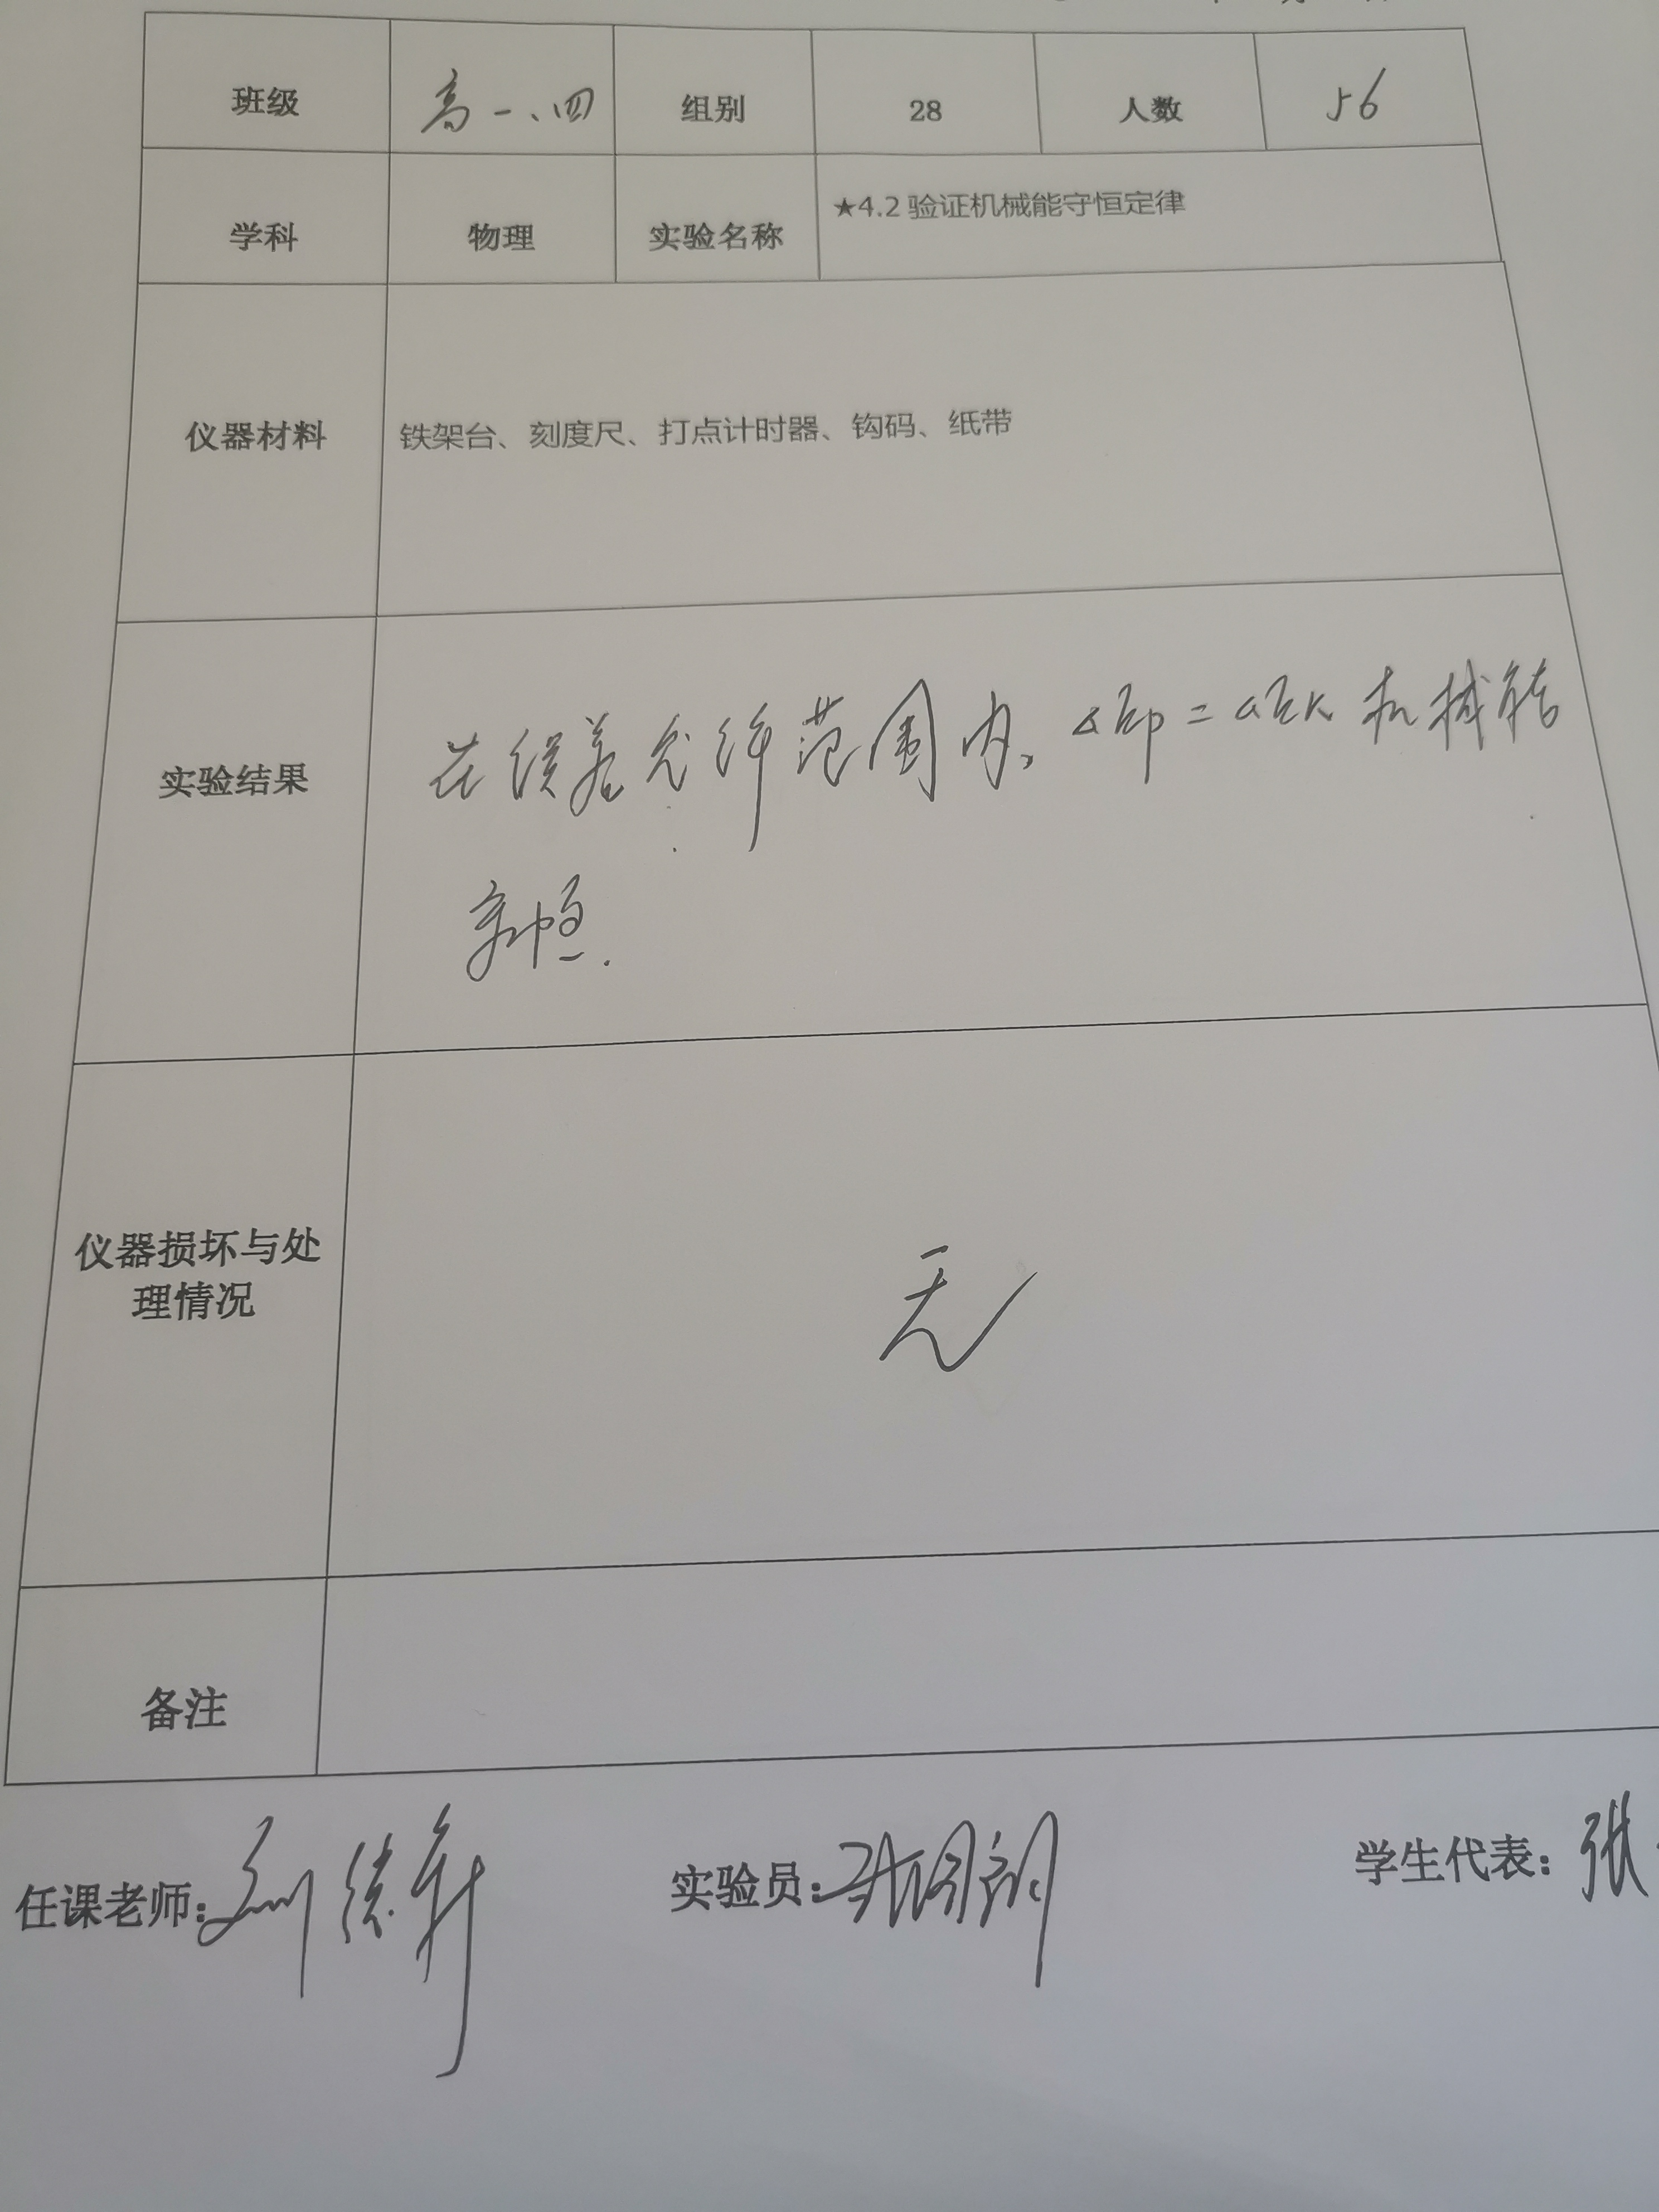 班级 高一、四 组别 28 人数 56
学科 物理 实验名称 ★4.2 验证机械能守恒定律
仪器材料 铁架台、刻度尺、打点计时器、钩码、纸带
实验结果 在误差允许范围内，△EP=△EK 机械能
守恒.
仪器损坏与处
理情况
无
备注
任课老师: 刘 实验员: 学生代表: 张